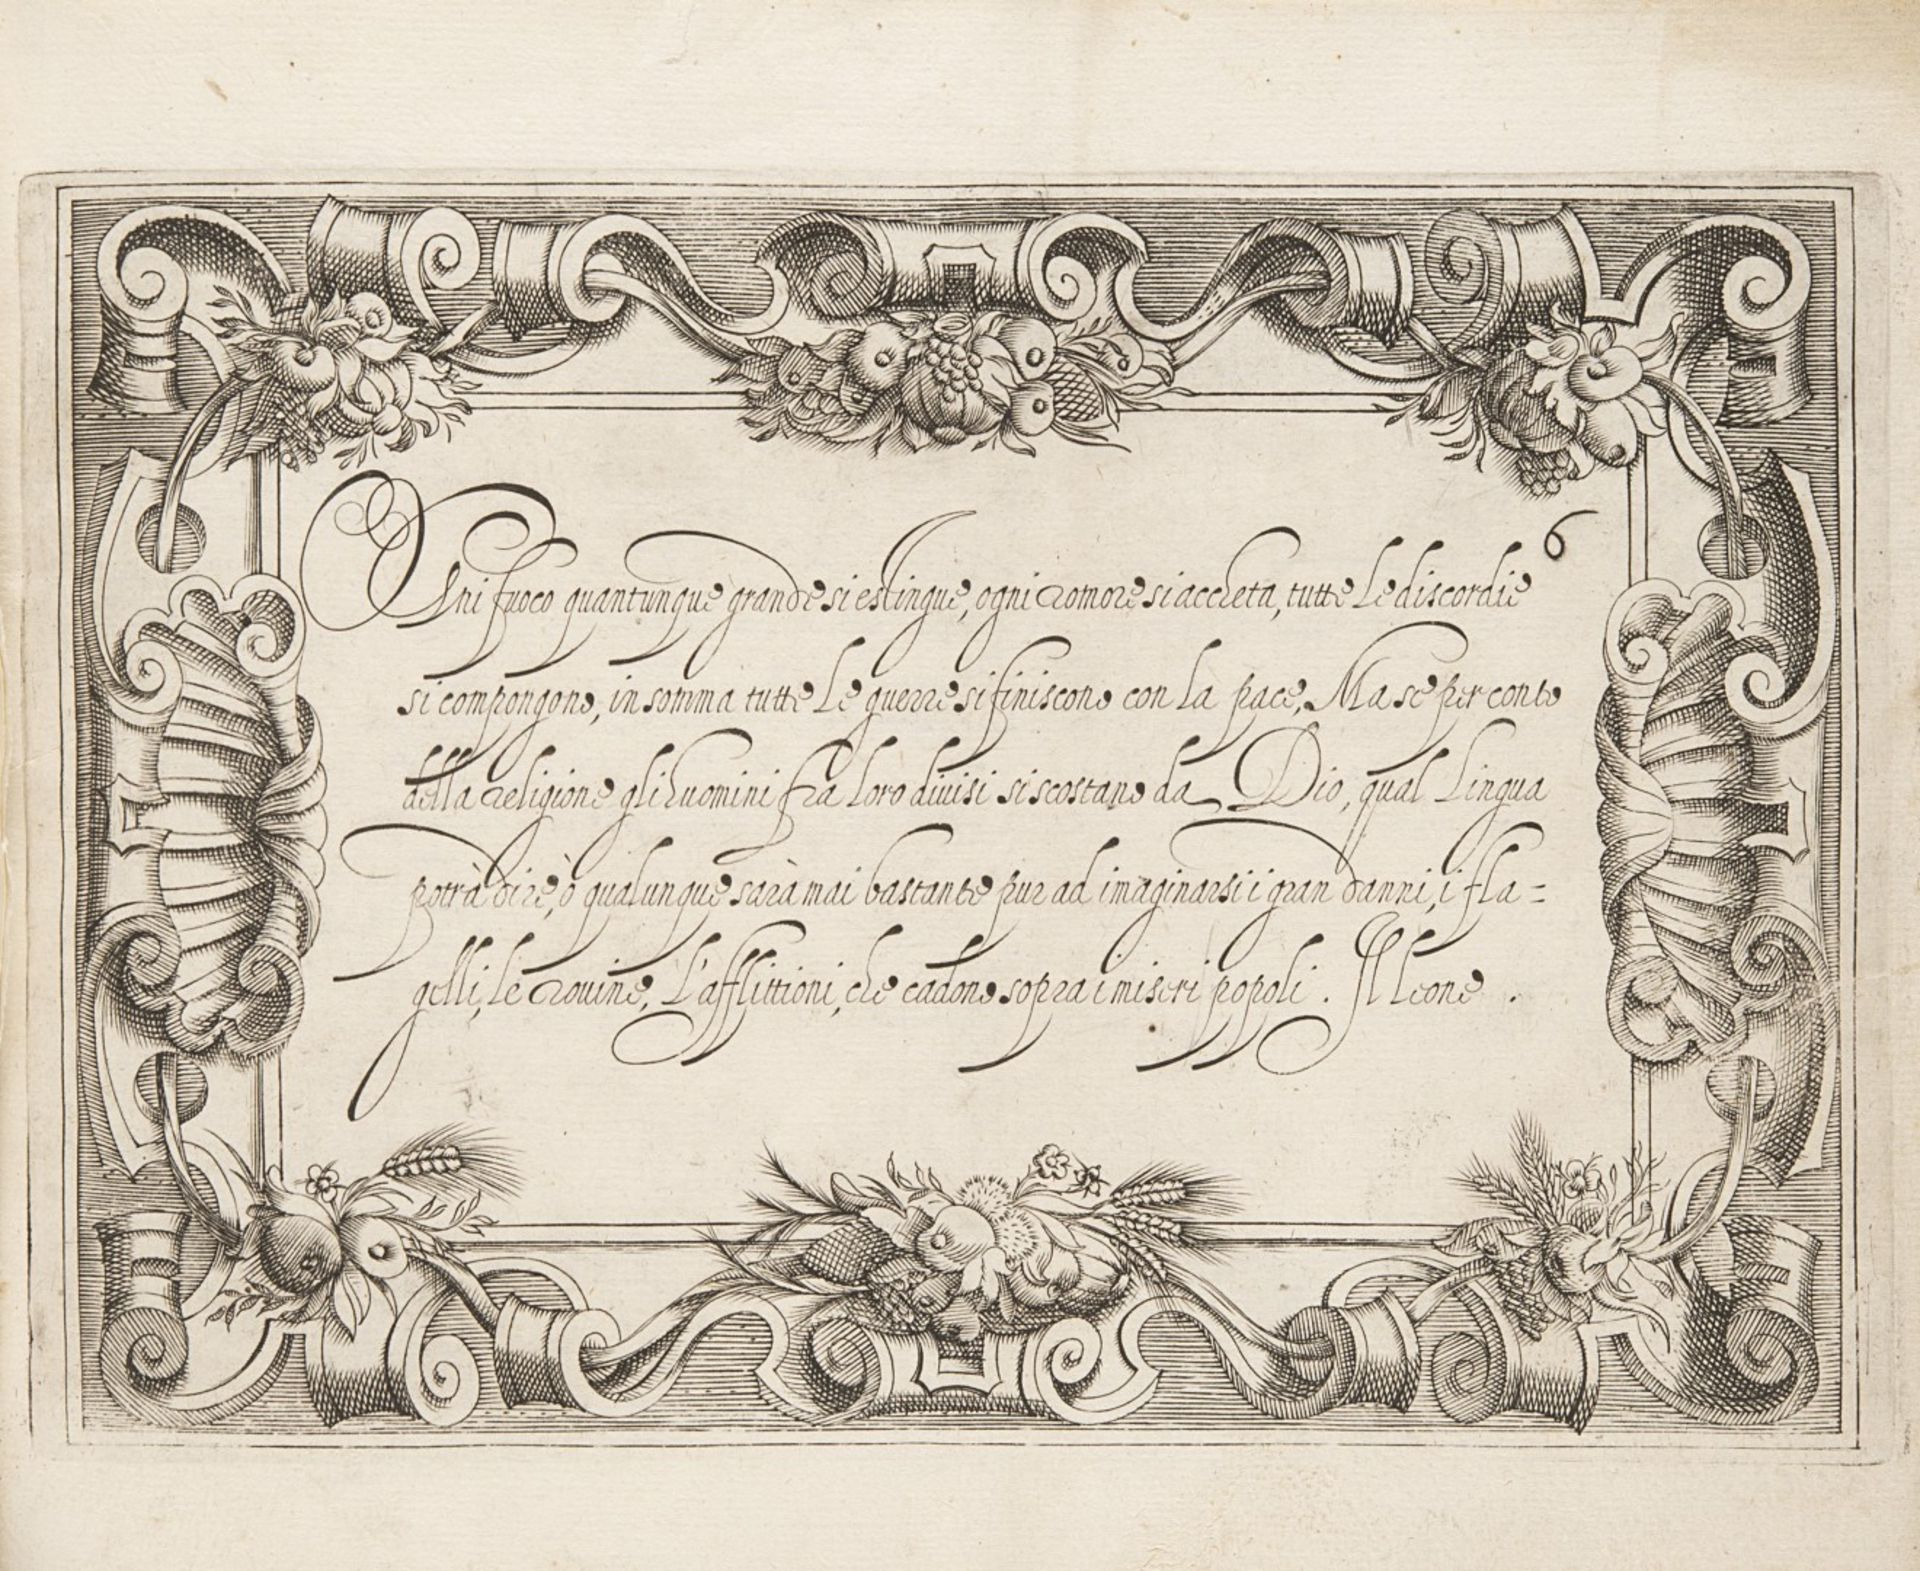 Ogni fuoco quantunque grande si estingue, ogni romore si accheta, tutte le discordie
si compongono, in somma tutte le guerre si finiscono con la pace, Ma se per conto
della religione gli huomini fra loro divisi si scostano da Dio, qual lingua
potrà dire, ò qualunque sarà mai bastante pur ad imaginarsi i gran danni, i fla=
gelli, le rovine, l'afflittioni, che cadono sopra i miseri popoli. Il Leone.